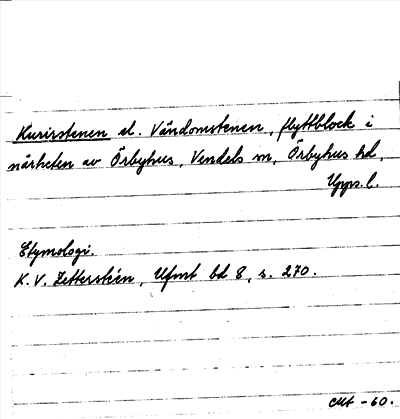 Kurirstenen el. Vändomstenen, flyttblock i
närheten av Örbyhus, Vendels sn, Örbyhus hd,
Upps. l.
Etymologi.
K. V. Zetterstéen, Ufmt bd 8, s. 270.
CMt -60.